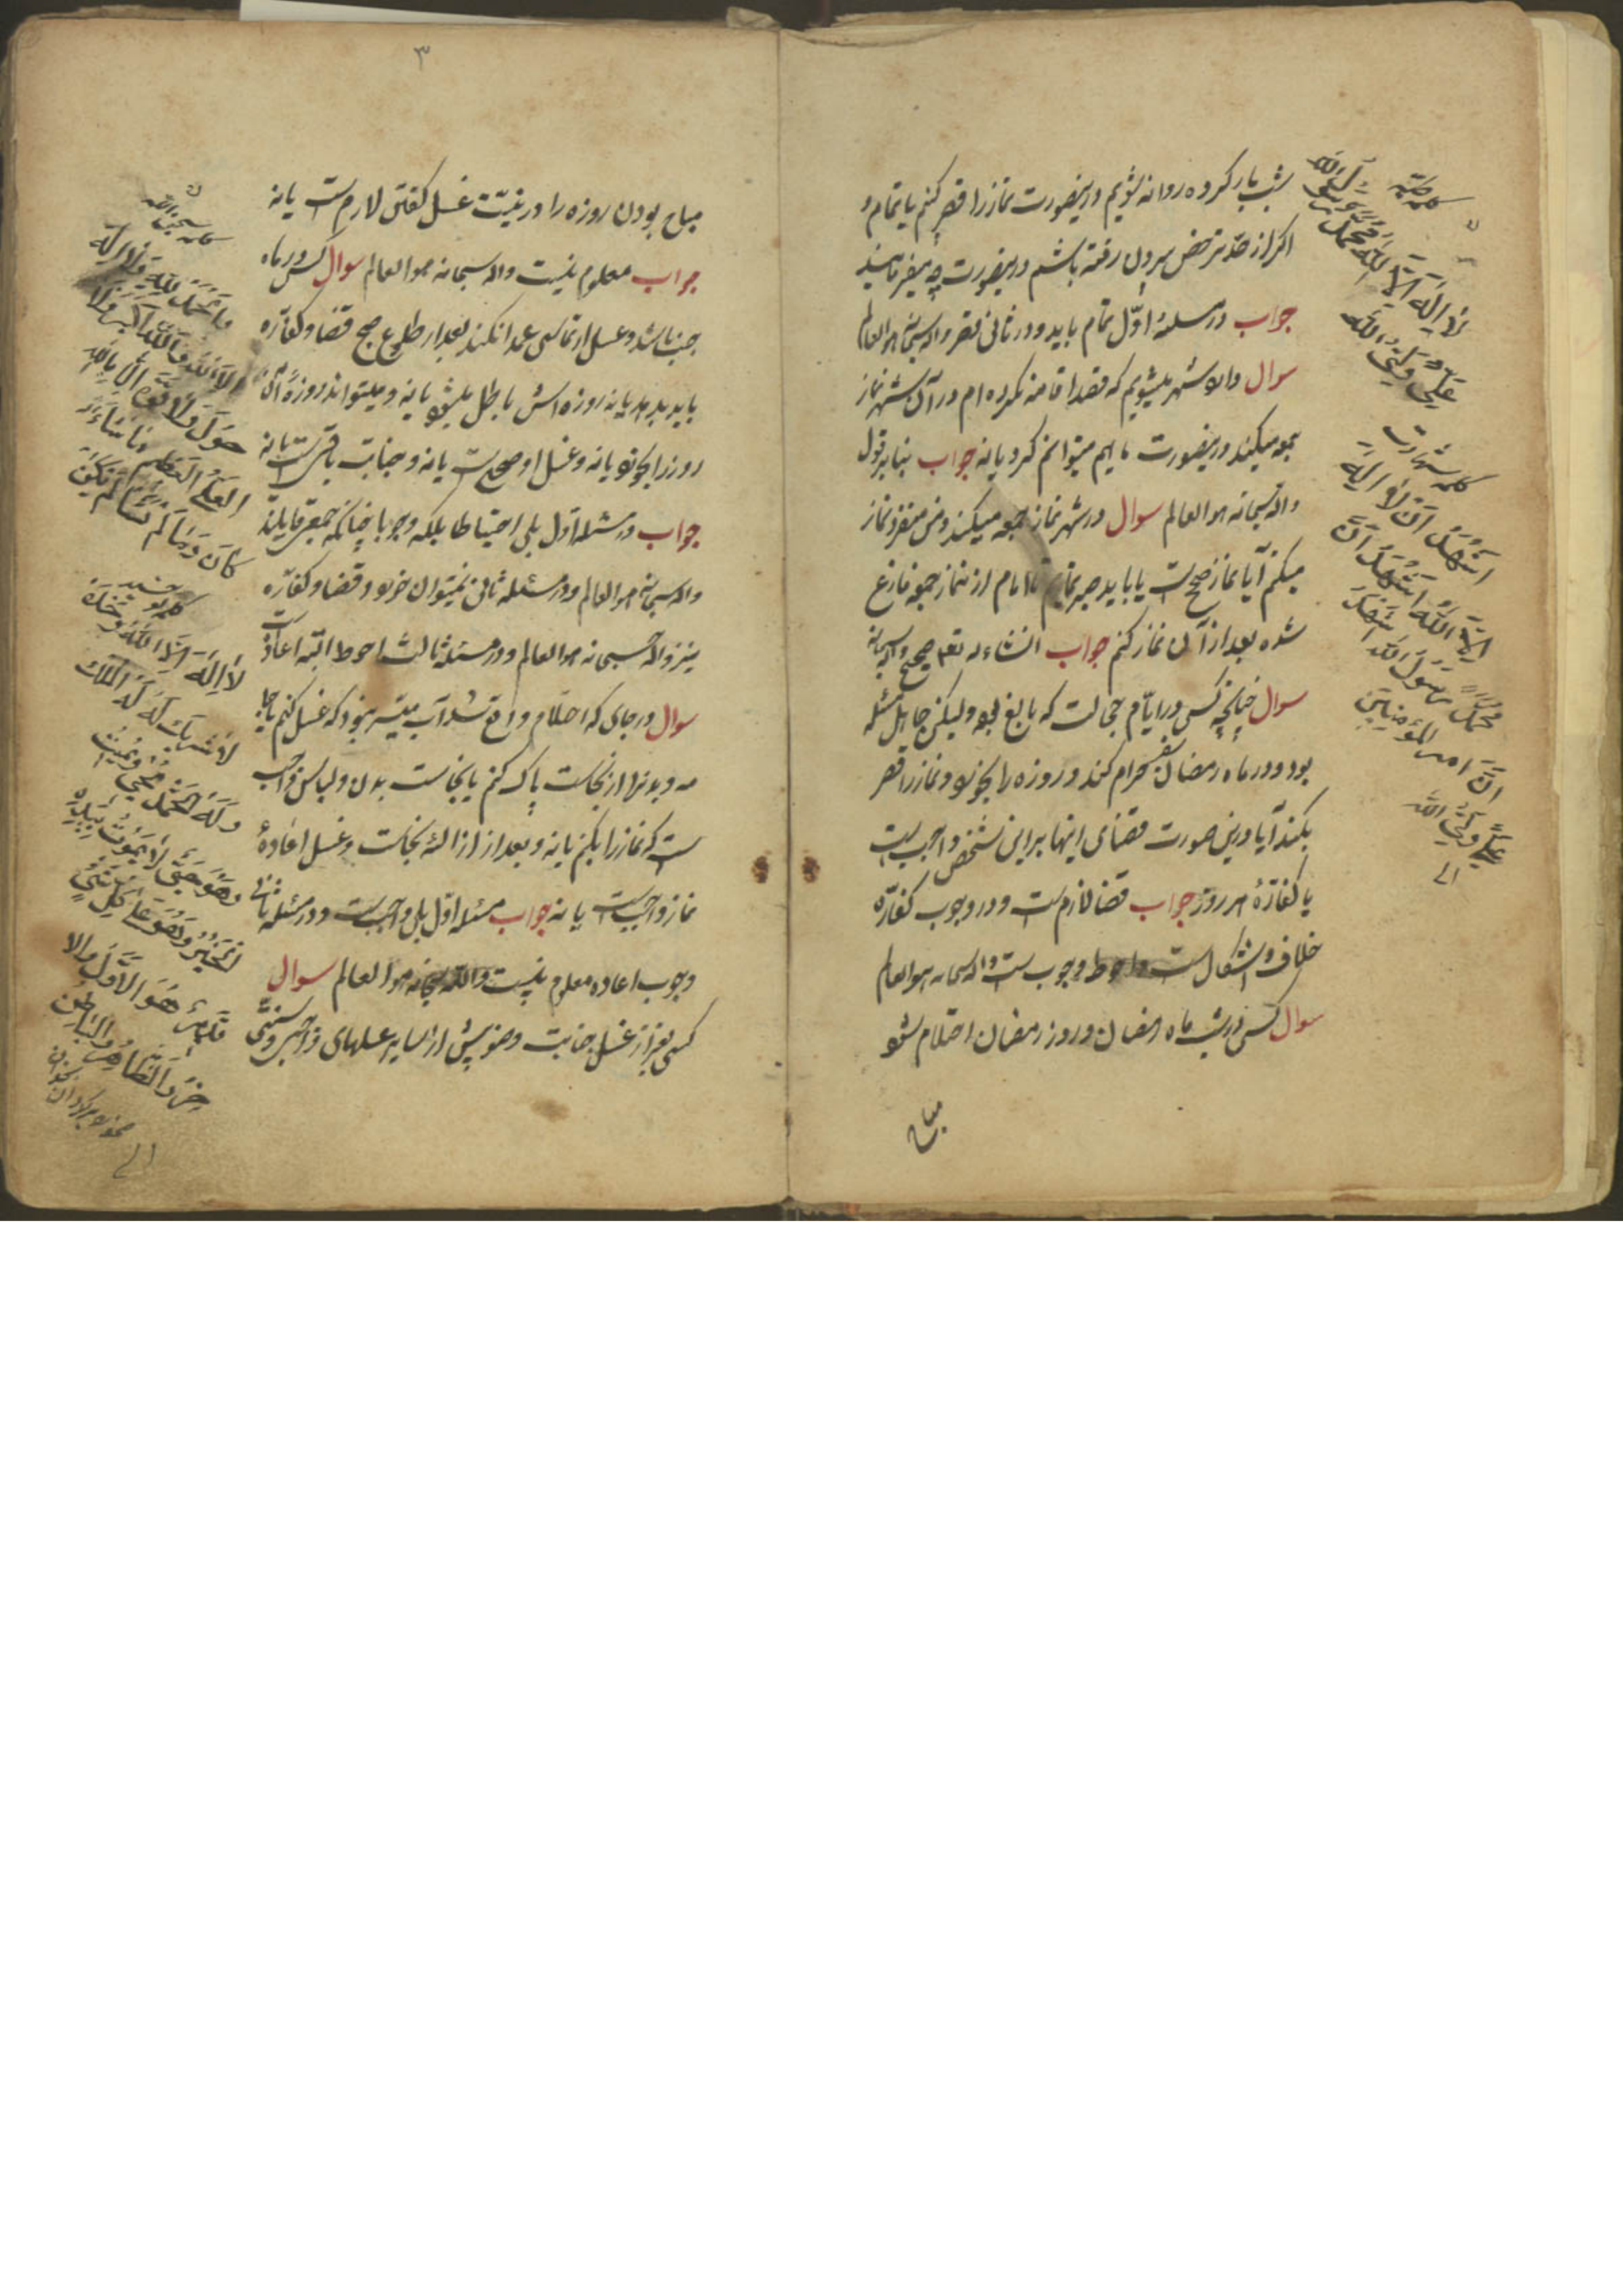 شب بار کرده روانه شویم درینصورت نماز را قصر کنم یا تمام و
اکر از حد ترخص بیرون رفته باشم درینصورت چه میفرمایند
جواب در مسئلهٔ اوّل تمام باید و در ثانی قصر واله سبحانه هو العالم
سوال وارد شهر میشویم که قصد اقامه نکرده ام در آن شهر نماز
جمعه میکنند درینصورت ما هم میتوانم کرد یا نه جواب بنا بر قول
واله سبحانه هو العالم سوال در شهر نماز جمعه میکنند و من منفرد نماز
میکنم آیا نماز صحیح است یا باید صبر نمایم تا امام از نماز جمعه فارغ
شده بعد از آن نماز کنم جواب انشاء له تعم صحیح
سوال چنانچه کسی در ایّام جهالت که بالغ بود و لیکن جاهل مسئله
بود و در ماه رمضان سفر حرام کند و روزه را بخورد و نماز را قصر
بکند آیا درین صورت قضای اینها بر این شخص واجب است
یا کفارهٔ هر روز جواب قضا لازم است و در وجوب کفّاره
خلاف و اشکال است و احوط وجوب است واله سبحانه هو العالم
سوال کسی در شب ماه رمضان و روز رمضان احتلام شود
مباح
کلمه طیبه
لا اله الا الله محمد رسول الله
علی ولی الله
کلمه شهادت
اشهد ان لا اله
الا الله اشهد ان
محمدا رسول الله اشهد
ان امیر المؤمنین
علی ولی الله
۳
مباح بودن روزه را در نیّت غسل کفتن لازم است یا نه
جواب معلوم نیست واله سبحانه هو العالم سوال کسی در ماه
جنب باشد و غسل ارتماسی عمدا نکند بعد از طلوع صبح قضا و کفّاره
باید بدهد یا نه روزه اش باطل میشود یا نه و میتواند روزهٔ آن
روز را بخورد یا نه و غسل او صحیح است یا نه و جنابت باقی است یا نه
جواب در مسئله اول بلی احتیاطا بلکه وجوبا چنانکه جمعی قایلند
واله سبحانه هو العالم و در مسئله ثانی نمیتوان خورد و قضا و کفّاره
نیز واله سبحانه هو العالم و در مسئله ثالث احوط البته اعاده است
سوال در جای که احتلام واقع شد آب میسّر نبود که غسل کنم یا جامه
مه و بدنرا از نجاست پاک کنم با نجاست بدن و لباس واجب
ست که نماز را بکنم یا نه و بعد از ازالهٔ نجاست و غسل اعادهٔ
نماز واجبست یا نه جواب مسئله اوّل بلی واجب است و در مسئله ثانی
وجوب اعاده معلوم نیست والله سبحانه هو العالم سوال
کسی بغیر از غسل جنابت وضو پیش از سایر غسلهای واجبی و سنتی
کلمه سبحان الله
والحمد لله ولا اله
الا الله والله اکبر ولا
حول ولا قوة الا بالله
العلی العظیم ما شاء
کان وما لم یشاء لم یکن
کلمه توحید
لا اله الا الله وحده
لا شریک له له الملک
وله الحمد یحیی ویمیت
وهو حی لا یموت بیده
الخیر وهو علی کل شیء
قدیر هو الاول والا
خر والظاهر والباطن